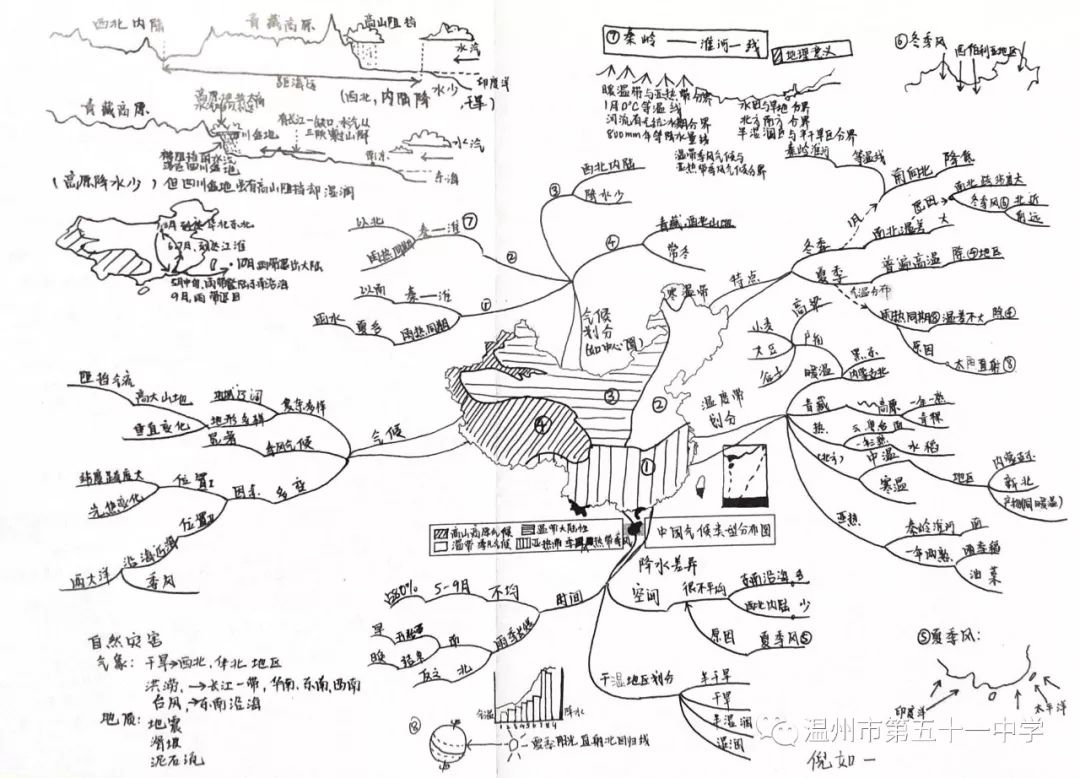 西北内陆
青藏高原
高山阻挡
水汽
距海远
水少
印度洋
(西北,内陆降水少,干旱)
青藏高原
四川盆地
水汽
东海
(高原降水少)但四川盆地虽有高山阻挡却湿润
⑦秦岭——淮河一线
地理意义
暖温带与亚热带分界
1月0℃等温线
河流有无结冰期分界
800mm年等降水量线
水田与旱地分界
北方南方分界
半湿润区与半干旱区分界
温带季风气候与
亚热带季风气候分界
⑥冬季风
西伯利亚地区
7.8月到达华北东北
6.7月,到达江淮
10月雨带退出大陆
9月,雨带退回
气候划分
(如中心图)
③
西北内陆
降水少
④
青藏,西北山地
常冬
②
⑦
秦—淮
以北
雨热同期
①
秦—淮
以南
雨热同期
夏多
雨水
特点
冬季
1月
秦岭淮河
等温线
南向北
降低
原因
冬季风⑥
北近
南远
南北温差大
夏季
普遍高温
除④地区
气温分布
雨热同期⑧
温差不大
除④
原因
太阳直射⑧
温度带
划分
寒温带
暖温
高粱
小麦
大豆
谷子
黑龙
内蒙古北
青藏
高原
一年一熟
青稞
热
水稻
中温
地区
内蒙古
新北
寒温
亚热
秦岭淮河
南
一年两熟
油菜
①
②
③
④
高山高原气候
温带大陆性
温带季风气候
亚热带季风
热带季风
中国气候类型分布图
气候
复杂多样
地域辽阔
地形多样
高大山地
阻挡寒流
垂直变化
季风气候
显著
多变
因素
位置1
纬度跨度大
光热变化
位置2
沿海近海
西太洋
季风
降水差异
时间
不均
5-9月
占80%
雨季长短
南
北
反之
空间
很不平均
东南沿海,多
西北内陆,少
原因
夏季风⑤
干湿地区划分
半干旱
干旱
半湿润
湿润
自然灾害
气象:干旱→西北,华北地区
洪涝,→长江一带,华南,东南,西南
台风→东南沿海
地质:地震
滑坡
泥石流
气温
降水
⑧
夏季阳光直射北回归线
⑤夏季风:
印度洋
太平洋
温州市第五十一中学
倪如一